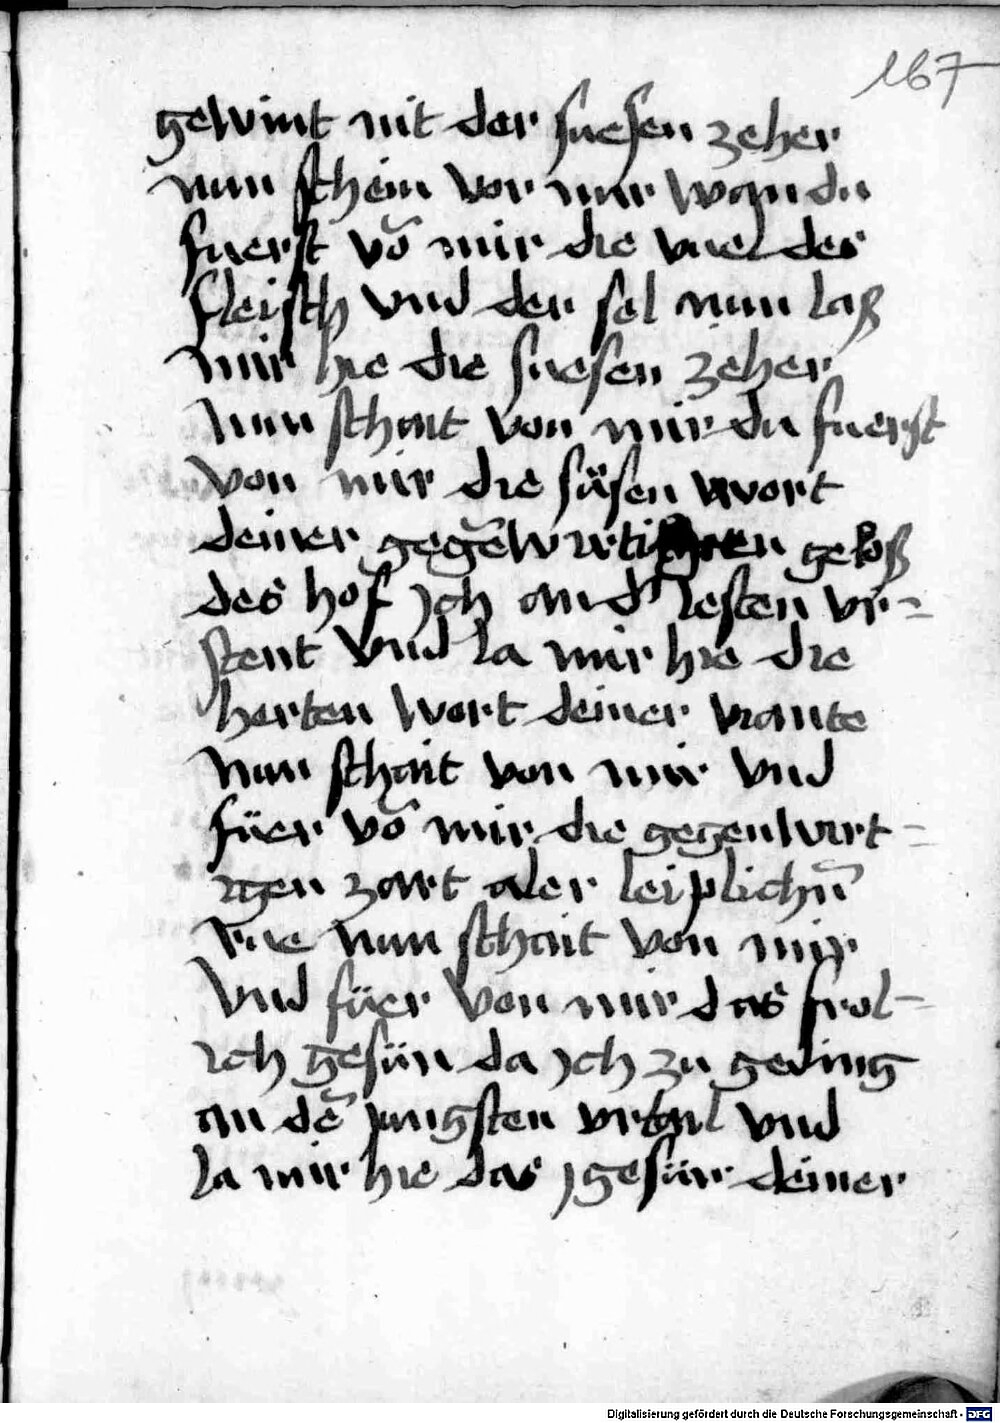 167
gewint mit der suesen zeher
nun schein vor mir wan du
fuerst võ mir die vnel des
fleisch vnd der sel nun laß
mir hie die suesen zeher
Nun schait von mir du fuerst
von mir die süsen wort
deiner gegẽwurti geloß
des hof jch an d lesten vr=
stent vnd la mir hie die
herten wort deiner
Nun schait von mir vnd
füer võ mir die gegenwurt=
igen zart aler leiplichñ
rue Nun schait von mir
Vnd füer von mir das frol=
ich gesün da jch zu geding
an dẽ jungsten vrtail vnd
la mir hie das deiner
Digitalisierung gefördert durch die Deutsche Forschungsgemeinschaft - DFG